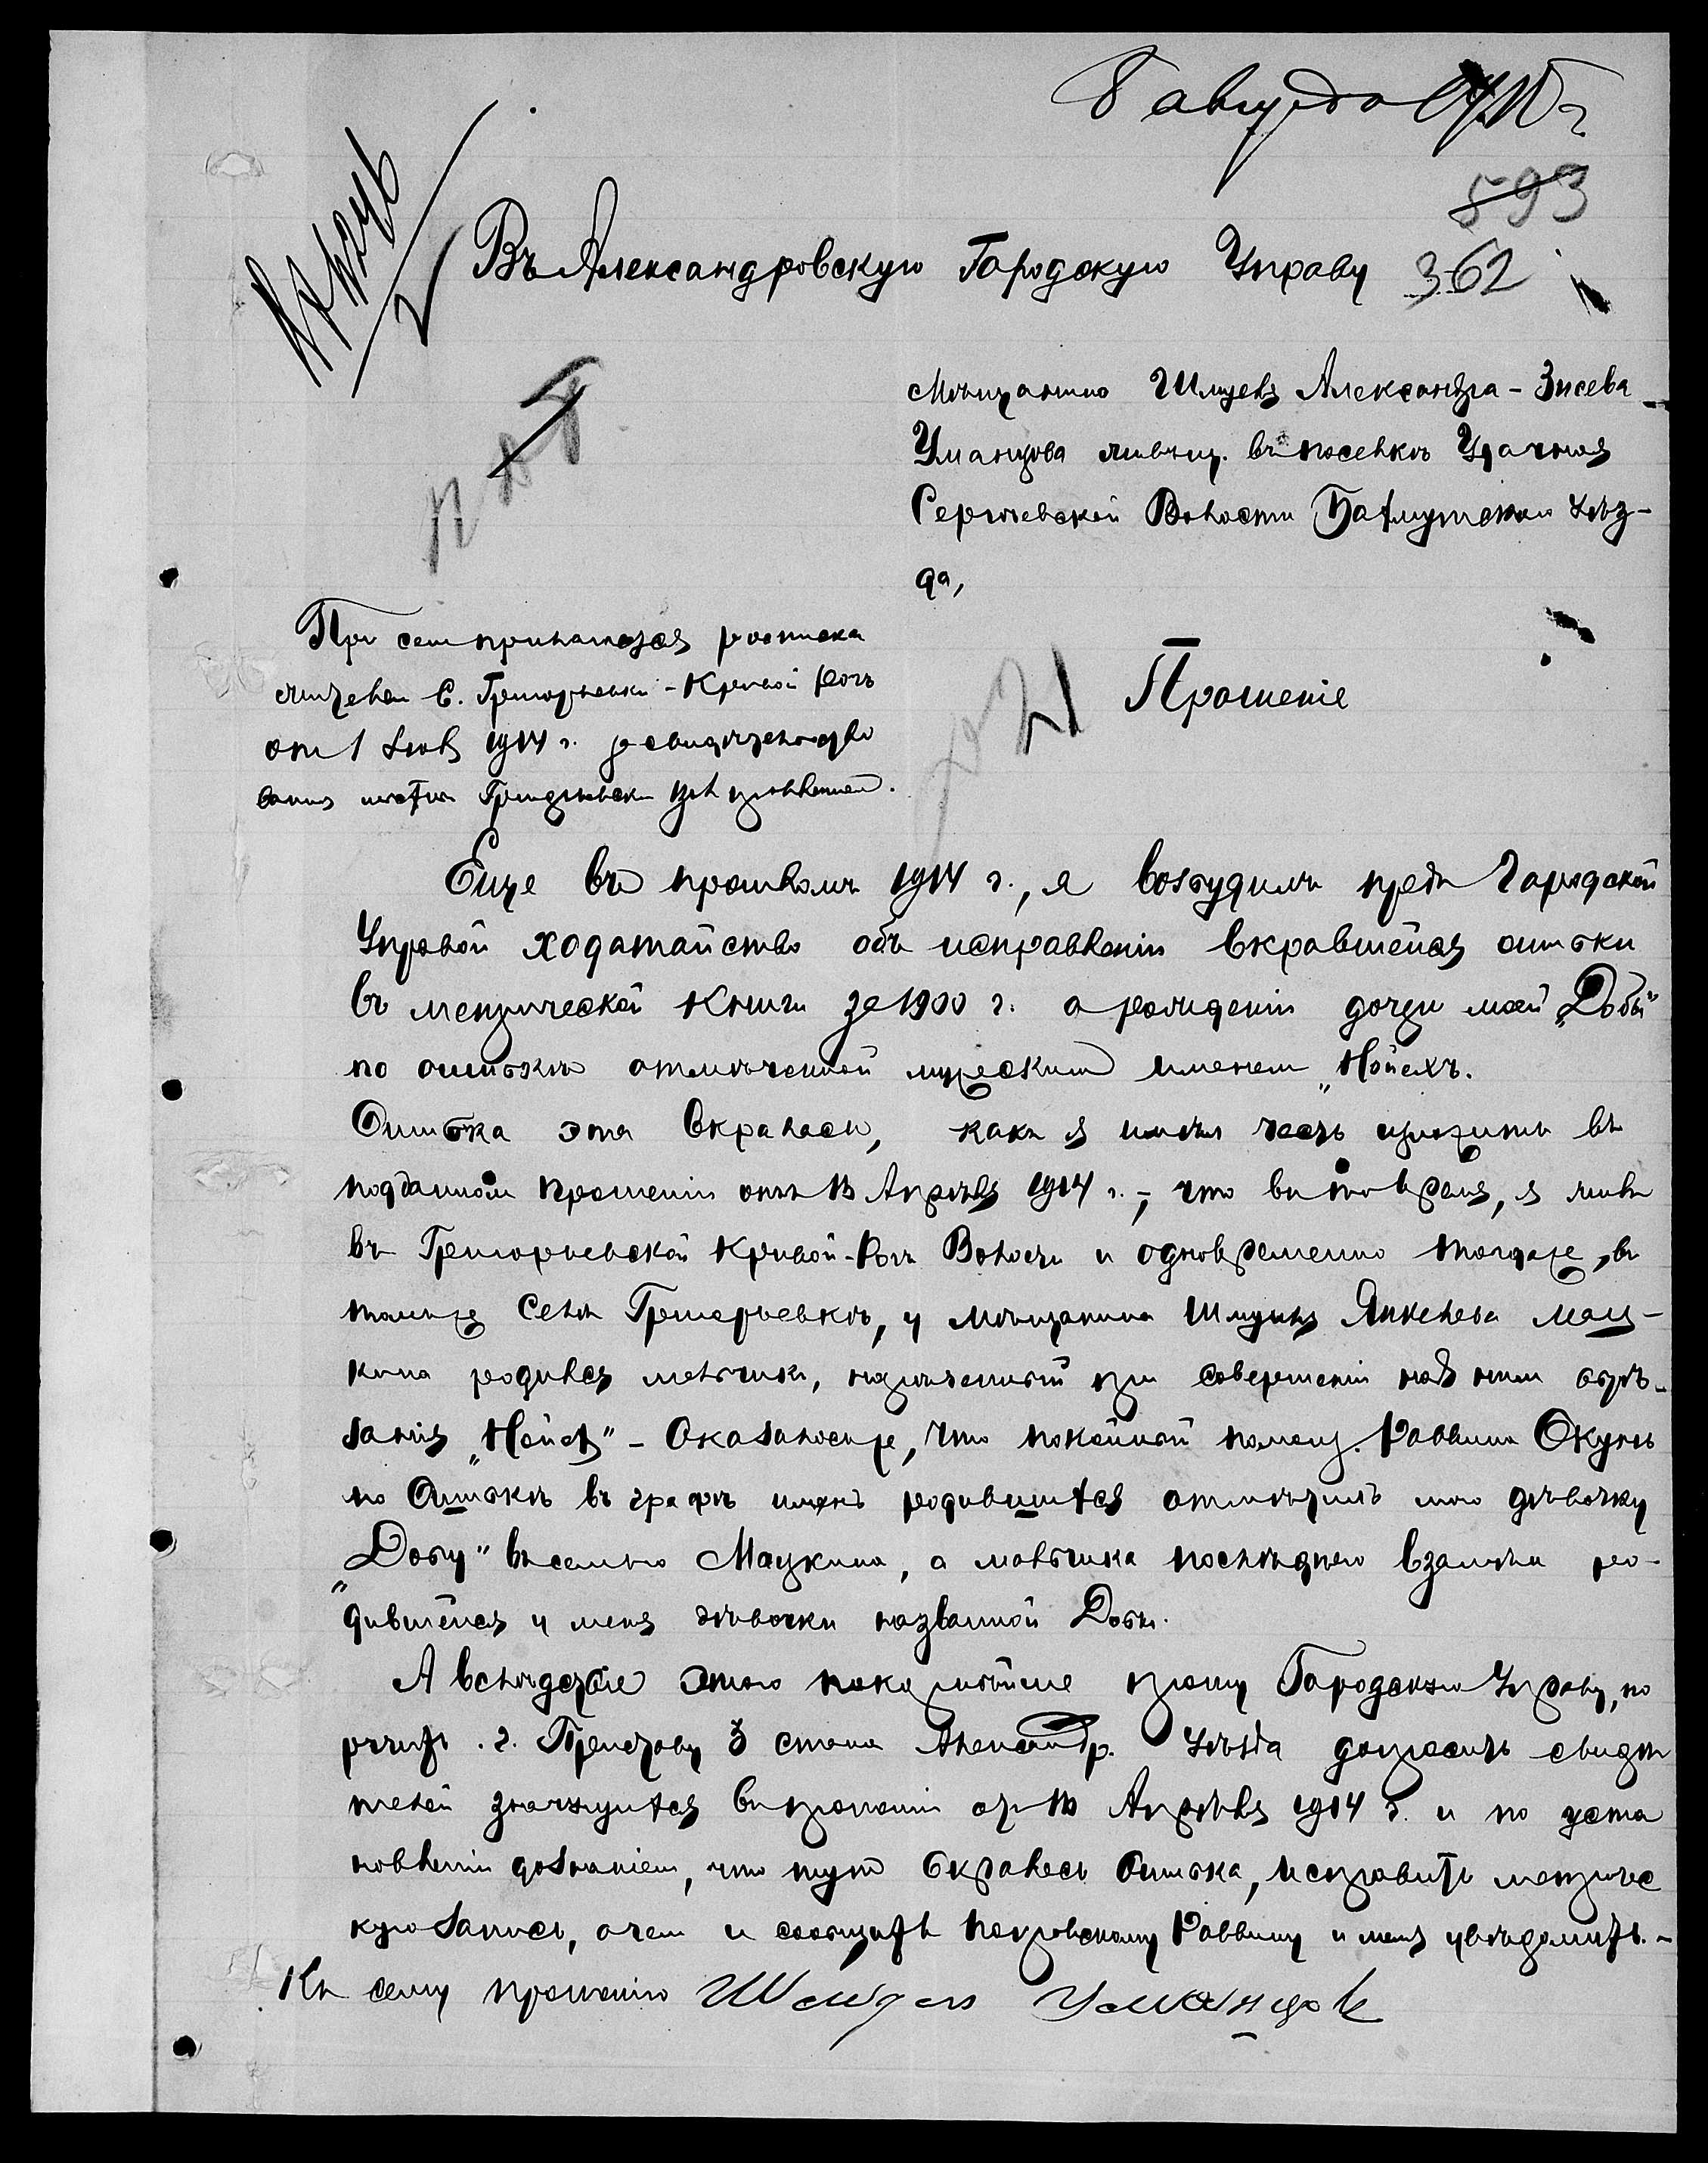 8 августа 1915 г
593
Въ Александровскую Городскую Управу 362
Мѣщанина Шмуеля Александра-Зисева
Уманцова живущ. въ поселкѣ Удачная
Сергѣевской Волости Бахмутскаго Уѣз-
да,
При сем прилагается росписка
жителей С. Григорьевки-Кривой Рогъ
от 1 1914 г.
Григорьевск.
Прошеніе
Еще въ прошломъ 1914 г., я возбудилъ предъ Городской
Управой ходатайство объ исправленіи вкравшейся ошибки
въ метрической книги за 1900 г. о рожденіи дочери моей „Добы"
по ошибкѣ отмѣченной мужеским именем „Нойехъ.
Ошибка эта вкралась, какъ я имѣлъ честь изложить въ
поданном прошеніи отъ Апрѣля 1914 г., что въ то время, я жилъ
въ Григорьевской Кривой-Рогъ Волости и одновременно тогда же, въ
томъ же Селѣ Григорьевкѣ, у мѣщанина Шмуиля Янкелева Мац-
кина родился мальчикъ, нареченный при совершеніи надъ ним обрѣ-
занія „Нойех" - Оказалось же, что покойный помощ. Раввина Окунь
по Ошибкѣ въ графѣ именъ родившихся отмѣтилъ мою дѣвочку
„Добу" въ семью Мацкина, а мальчика послѣдняго взамѣнъ ро-
дившейся у меня дѣвочки названной Добы.
А вслѣдствіе этого покорнѣйше прошу Городскую Управу, по
ручить г. Приставу 3 стана Александр. Уѣзда допросить свидѣ
телей значущихся въ прошеніи от Апрѣля 1914 г. и по уста
новленіи дознаніем, что тут вкралась Ошибка, исправить метричес
кую запись, о чем и сообщить Покровскому Раввину и меня увѣдомить.-
Къ сему прошенію Уманцов